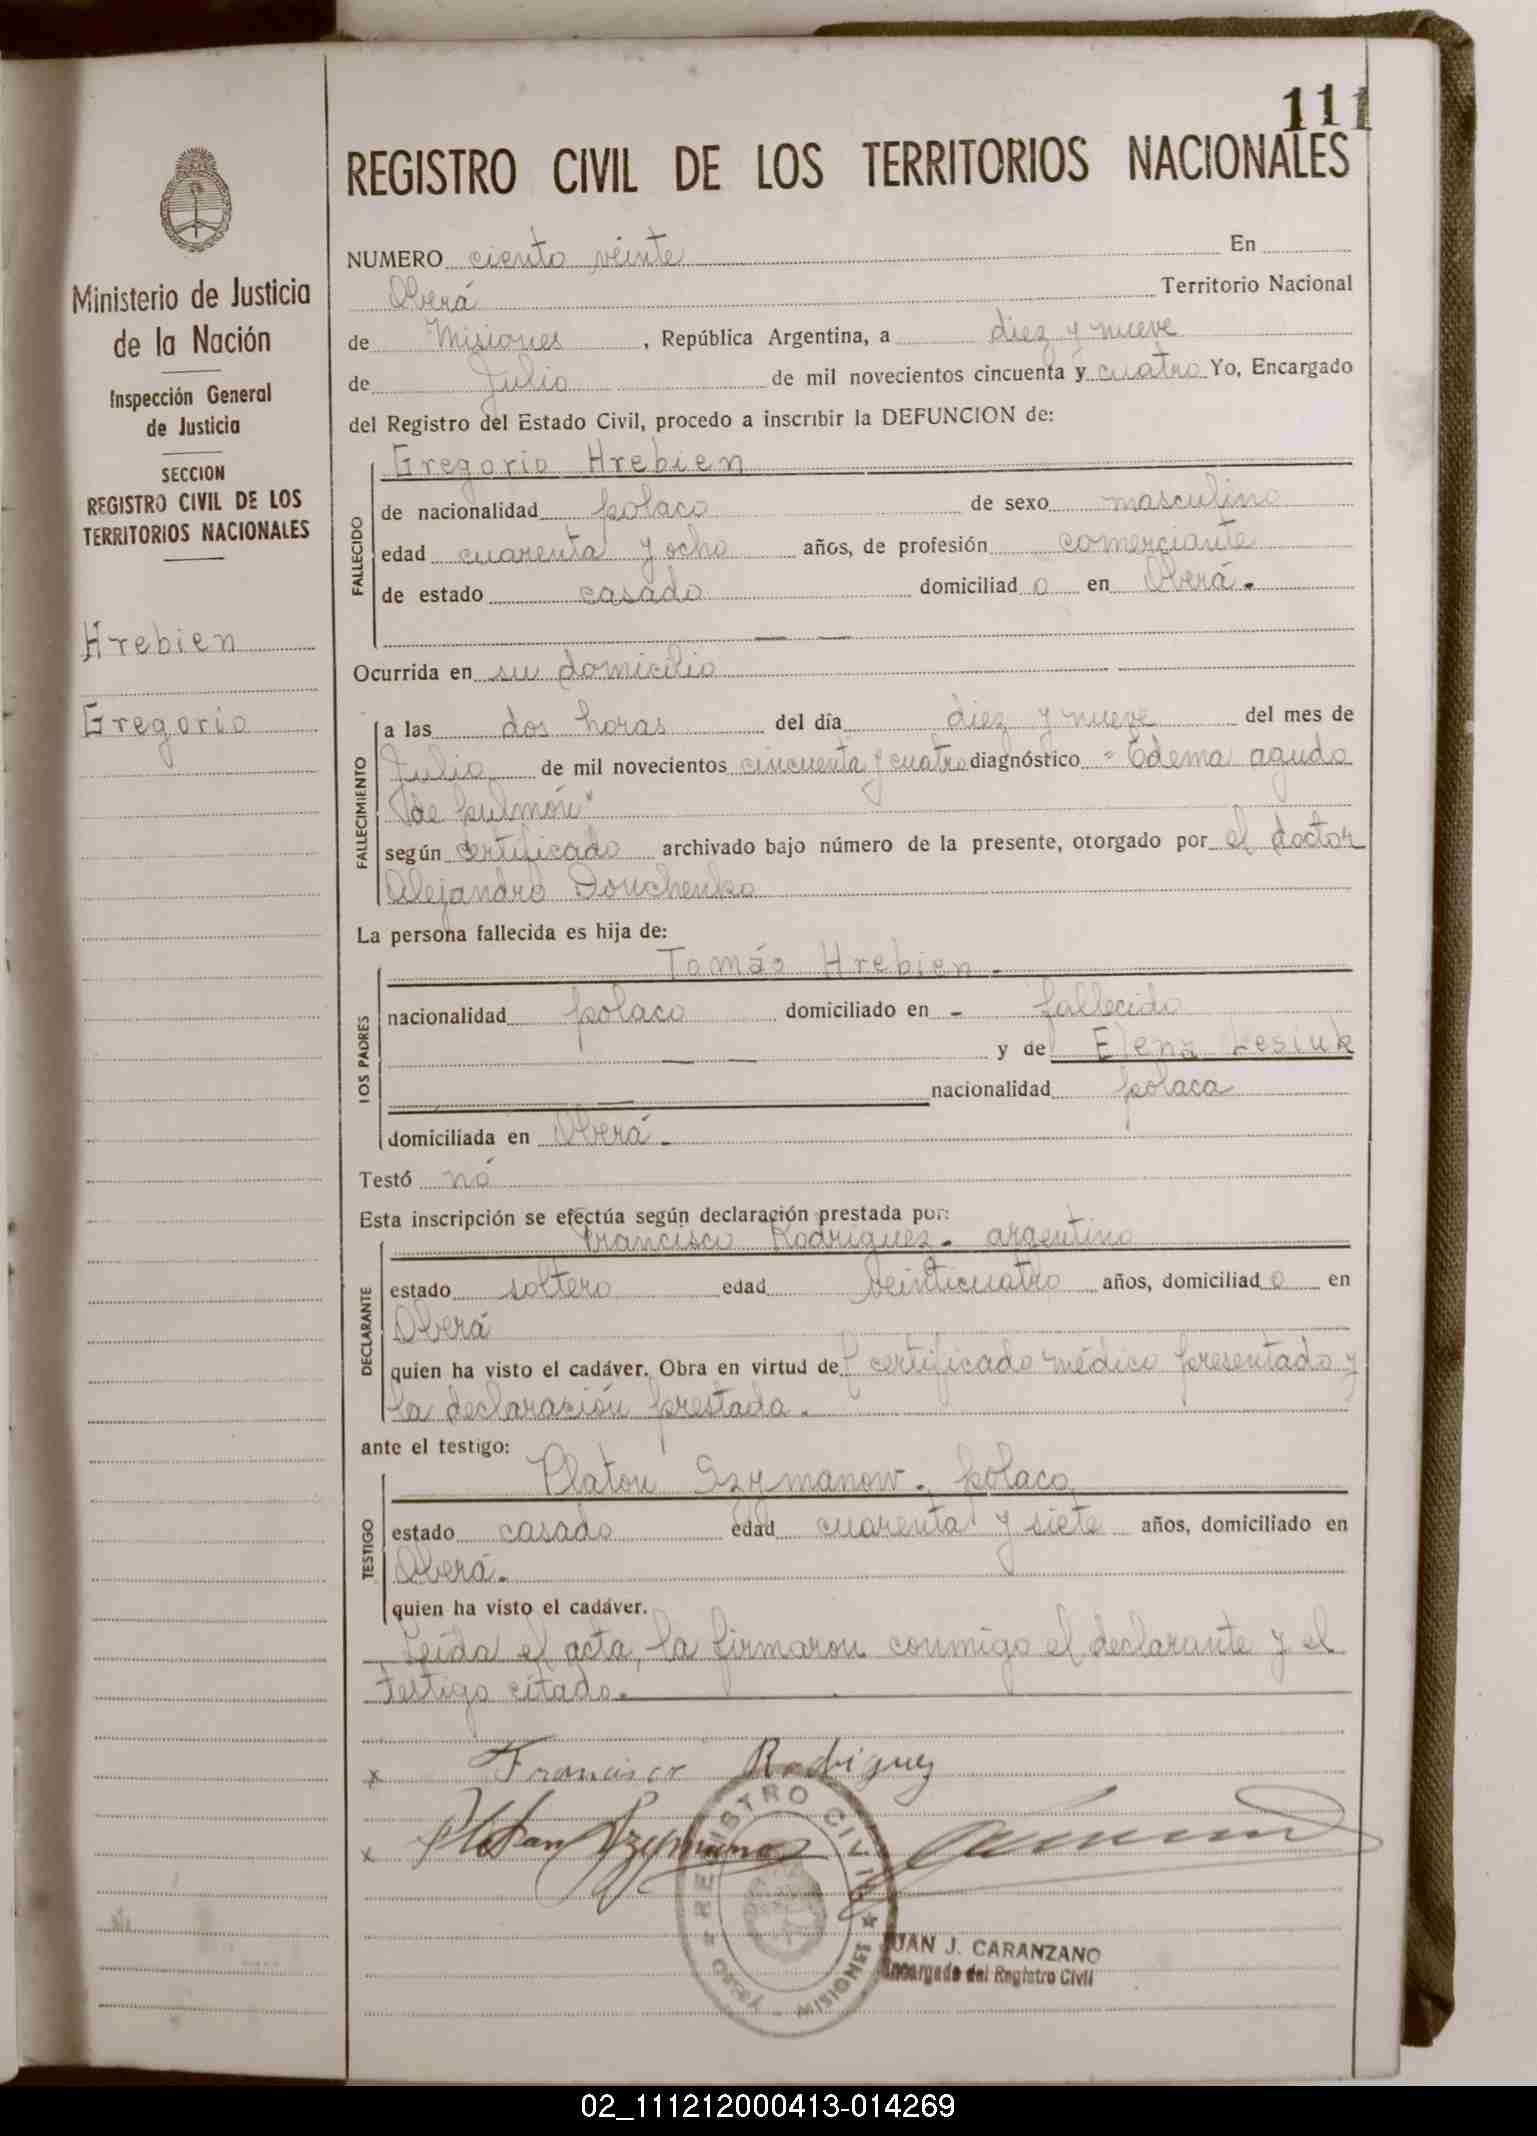 111
REGISTRO CIVIL DE LOS TERRITORIOS NACIONALES
Ministerio de Justicia
de la Nación
Inspección General
de Justicia
SECCION
REGISTRO CIVIL DE LOS
TERRITORIOS NACIONALES
Hrebien
Gregorio
NUMERO ciento veinte En
Oberá Territorio Nacional
de Misiones, República Argentina, a diez y nueve
de Julio de mil novecientos cincuenta y cuatro Yo, Encargado
del Registro del Estado Civil, procedo a inscribir la DEFUNCION de:
FALLECIDO
Gregorio Hrebien
de nacionalidad polaco de sexo masculino
edad cuarenta y ocho años, de profesión comerciante
de estado casado domiciliado en Oberá.
Ocurrida en su domicilio
FALLECIMIENTO
a las dos horas del día diez y nueve del mes de
Julio de mil novecientos cincuenta y cuatro diagnóstico "Edema agudo
de pulmón"
según certificado archivado bajo número de la presente, otorgado por el doctor
Alejandro Douchenko
La persona fallecida es hija de:
LOS PADRES
Tomás Hrebien.
nacionalidad polaco domiciliado en - fallecido
— — y de Elena Lesiuk
— nacionalidad polaca
domiciliada en Oberá.
Testó nó
Esta inscripción se efectúa según declaración prestada por:
DECLARANTE
Francisco Rodriguez. argentino
estado soltero edad veinticuatro años, domiciliado en
Oberá
quien ha visto el cadáver. Obra en virtud del certificado médico presentado y
la declaración prestada.
ante el testigo:
TESTIGO
Platon Szymanow. polaco
estado casado edad cuarenta y siete años, domiciliado en
Oberá.
quien ha visto el cadáver.
Leída el acta, la firmaron conmigo el declarante y el
testigo citado.
x Francisco Rodriguez
x Platan Szymanow
REGISTRO CIVIL
MISIONES
JUAN J. CARANZANO
Encargado del Registro Civil
02_111212000413-014269